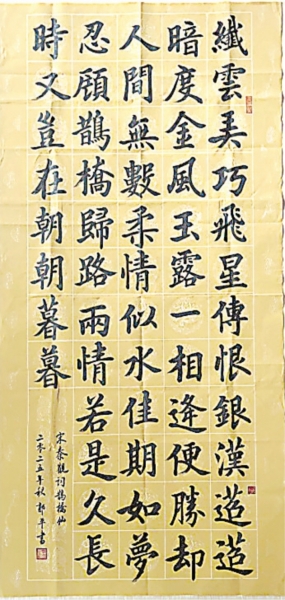 纖雲弄巧飛星傳恨銀漢迢迢
暗度金風玉露一相逢便勝却
人間無數柔情似水佳期如夢
忍顧鵲橋歸路兩情若是久長
時又豈在朝朝暮暮
宋秦觀詞鵲橋仙
二零二五年秋 平書